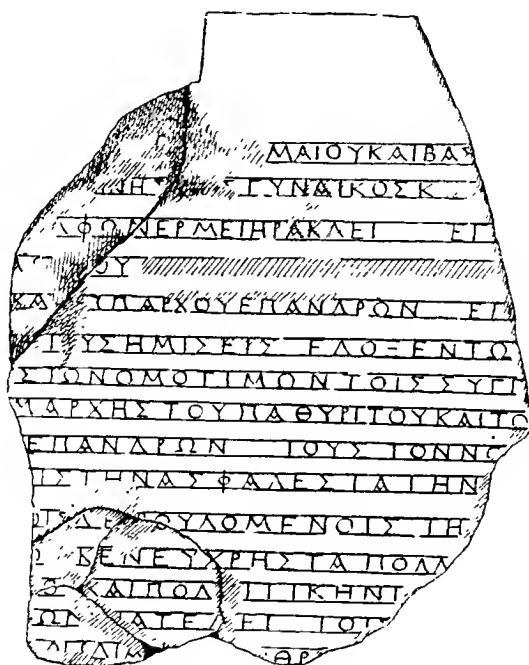 ΜΑΙΟΥΚΑΙΒΑΣ
ΝΗ Σ ΓΥΝΑΙΚΟΣΚ
ΛΦΩΝΕΡΜΕΙΗΡΑΚΛΕΙ ΕΓ
ΟΥ
ΚΑ ΥΠΑΡΧΟΥΕΠΑΝΔΡΩΝ ΕΓ
ΤΥΣΗΜΙΣΕΙΣ ΕΔΟΞΕΝΤΩ
ΣΤΩΝΟΜΟΤΙΜΩΝΤΟΙΣΣΥΓΓ
ΜΑΡΧΗΣΤΟΥΠΑΘΥΡΙΤΟΥΚΑΙΤΟ
ΕΠΑΝΔΡΩΝ ΤΟΥΣΤΟΝΝΟ
ΙΣΤΗΝΑΣΦΑΛΕΣΤΑΤΗΝ
ΟΙΣΔΕΒΟΥΛΟΜΕΝΟΙΣΤΗ
ΚΕΝΕΥΧΡΗΣΤΑΠΟΛΛ
ΚΑΙΠΟΛΙΤΙΚΗΝΤ
ΩΝ ΑΤΕΛΕΙ ΤΟΥ
ΘΡ